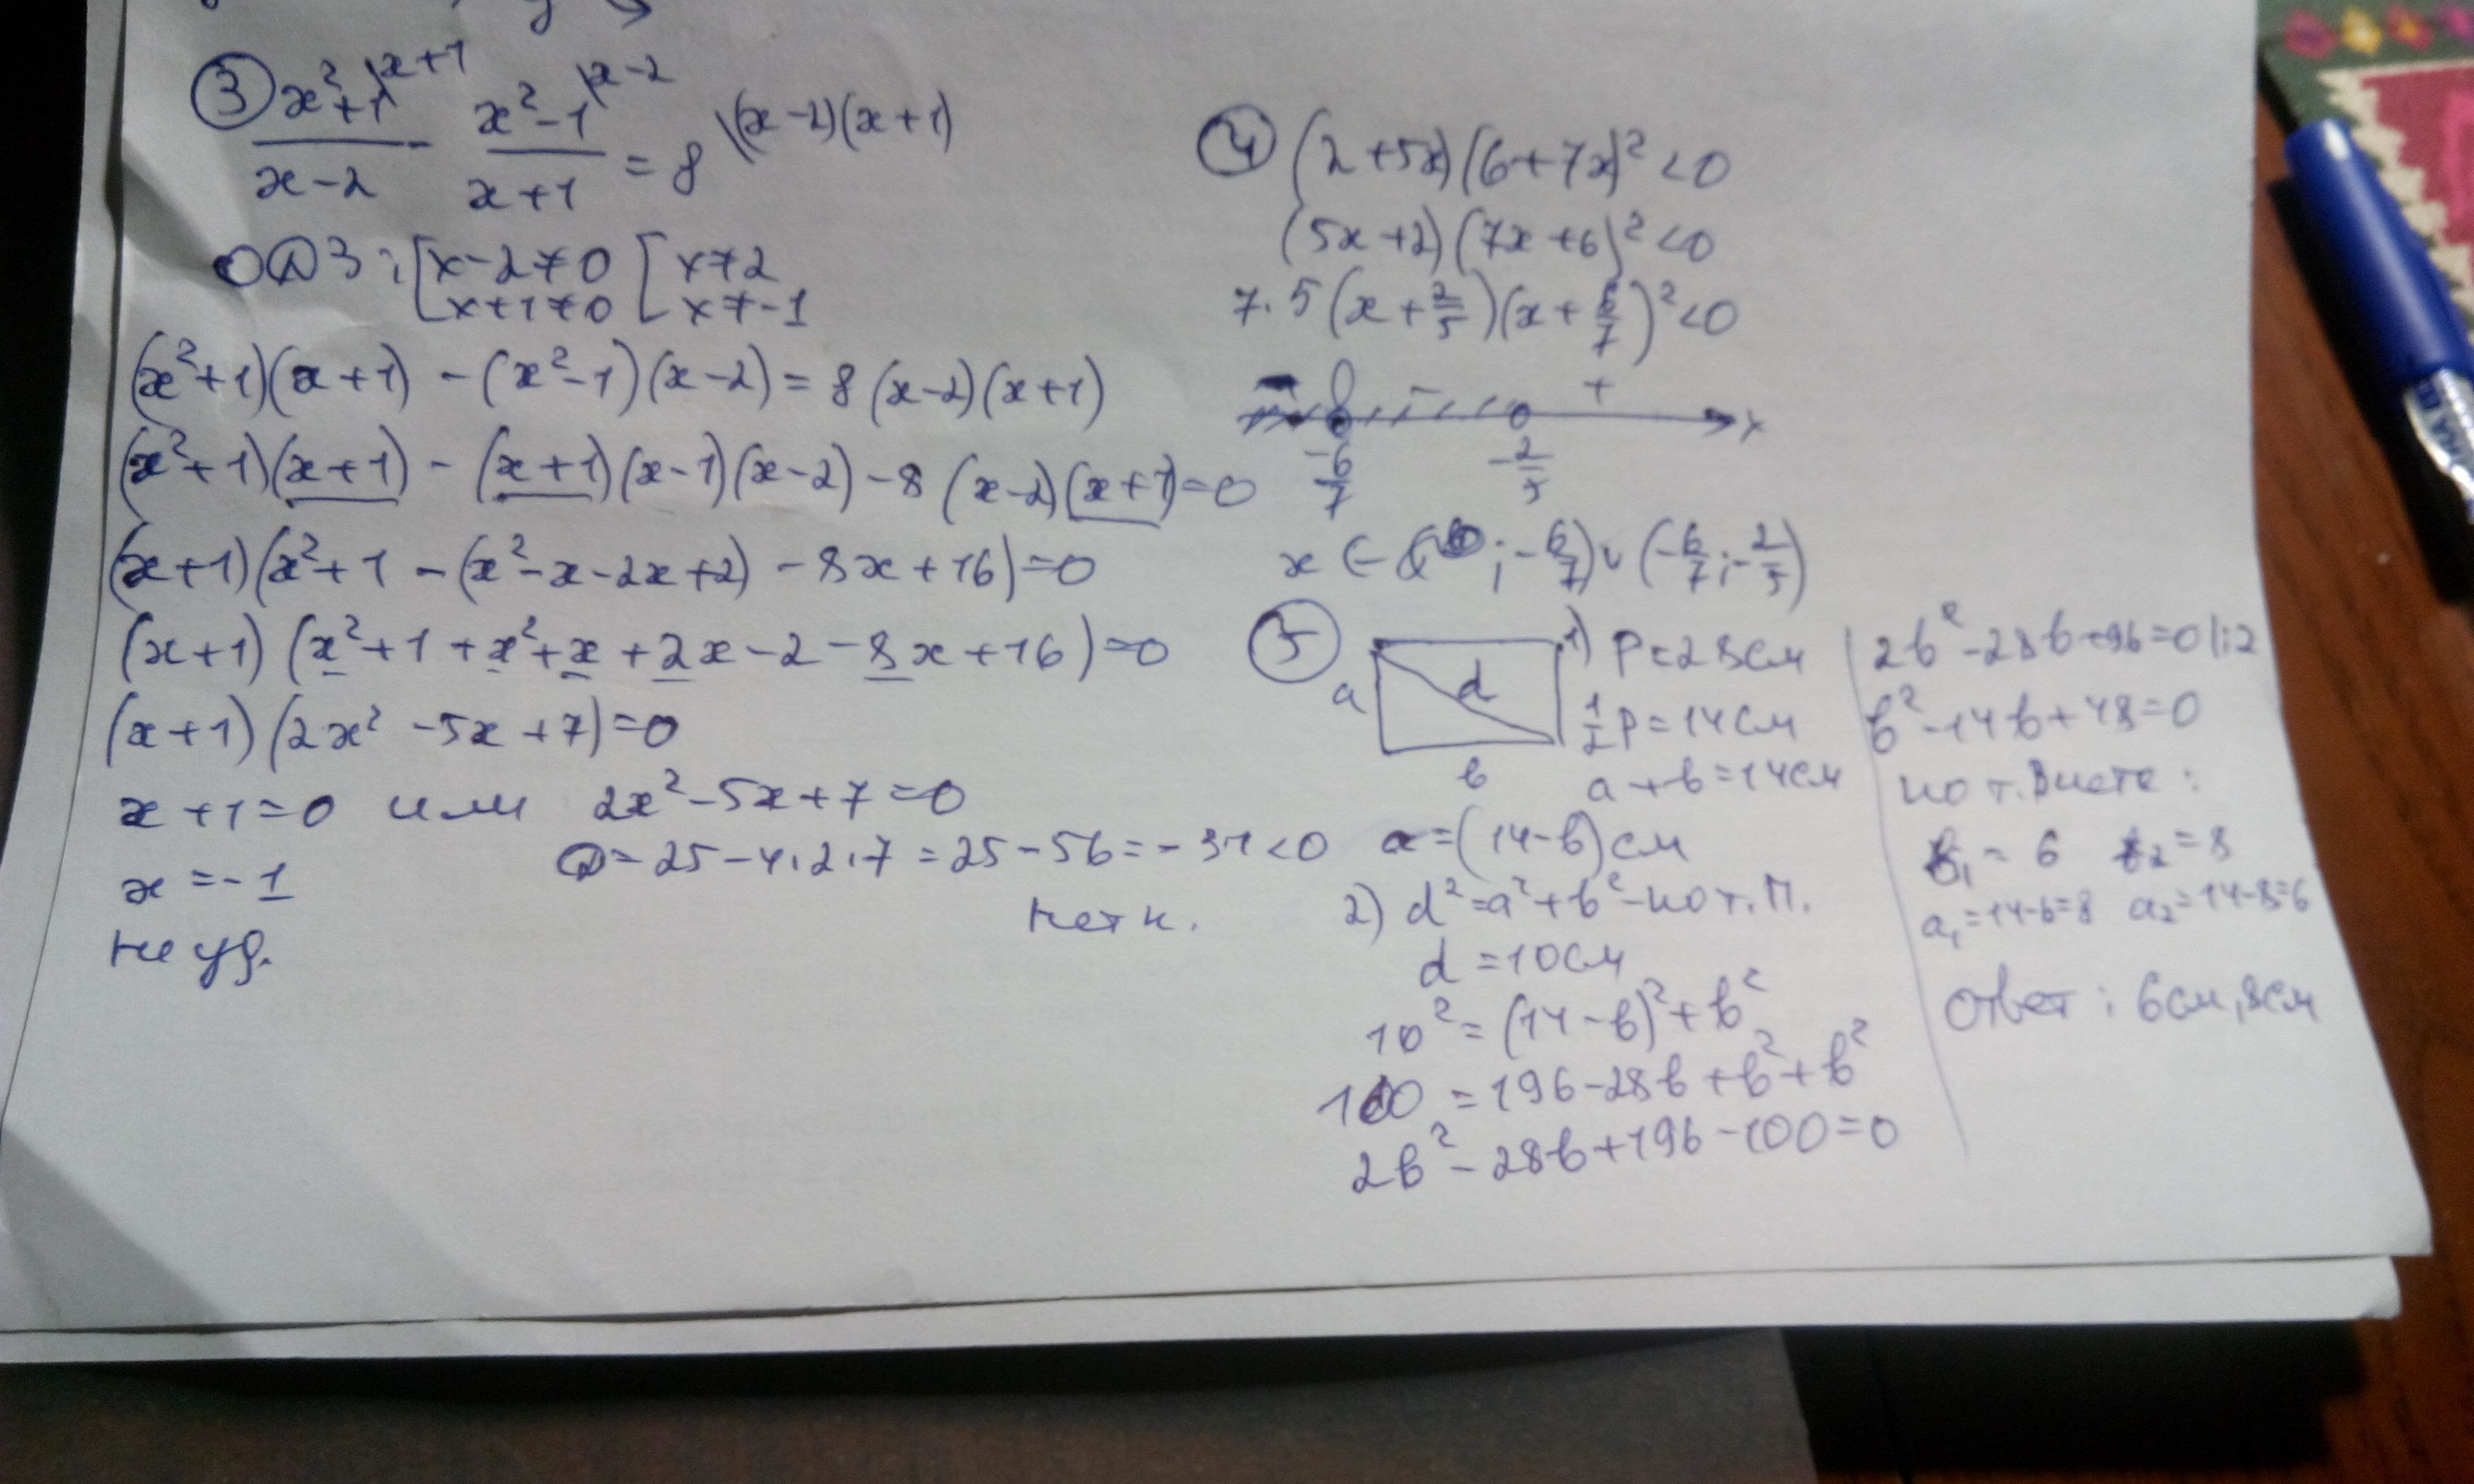 ③ x²+1\x+1 / x-2 - x²-1\x-2 / x+1 = 8 \(x-2)(x+1)
ОДЗ: [x-2≠0 [x≠2
x+1≠0 x≠-1
(x²+1)(x+1) - (x²-1)(x-2) = 8(x-2)(x+1)
(x²+1)(x+1) - (x+1)(x-1)(x-2) - 8(x-2)(x+1)=0
(x+1)(x²+1 - (x²-x-2x+2) - 8x+16)=0
(x+1)(x²+1+x²+x+2x-2-8x+16)=0
(x+1)(2x²-5x+7)=0
x+1=0 или 2x²-5x+7=0
x=-1 D=25-4·2·7=25-56=-31<0
не уд. нет к.
④ (2+5x)(6+7x)²<0
(5x+2)(7x+6)²<0
7·5(x+2/5)(x+6/7)²<0
- - + x
-6/7 -2/5
x ∈ (-∞;-6/7)∪(-6/7;-2/5)
⑤ a d в
1) P=28см
1/2 P=14см
a+в=14см
a=(14-в)см
2) d²=a²+в²-по т.П.
d=10см
10²=(14-в)²+в²
100=196-28в+в²+в²
2в²-28в+196-100=0
2в²-28в+96=0|:2
в²-14в+48=0
по т.Виета:
в₁=6 в₂=8
a₁=14-6=8 a₂=14-8=6
Ответ: 6см, 8см